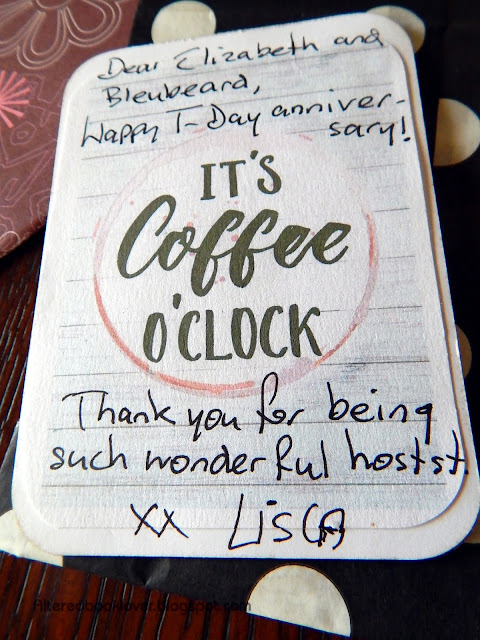 Dear Elizabeth and
Bleubeard,
Happy T-Day anniver-
sary!
IT'S
Coffee
O'CLOCK
Thank you for being
such wonderful hostst.
xx Lisca
Filteredbooklover.blogspot.com